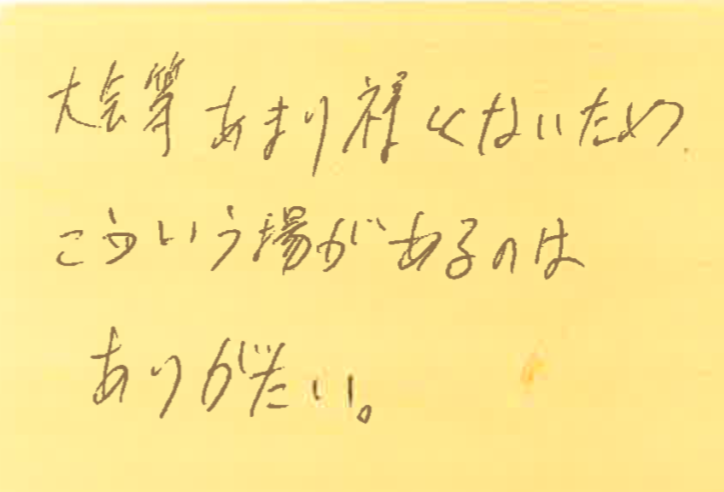 大会等あまり様くないため
こういう場があるのは
ありがたい。